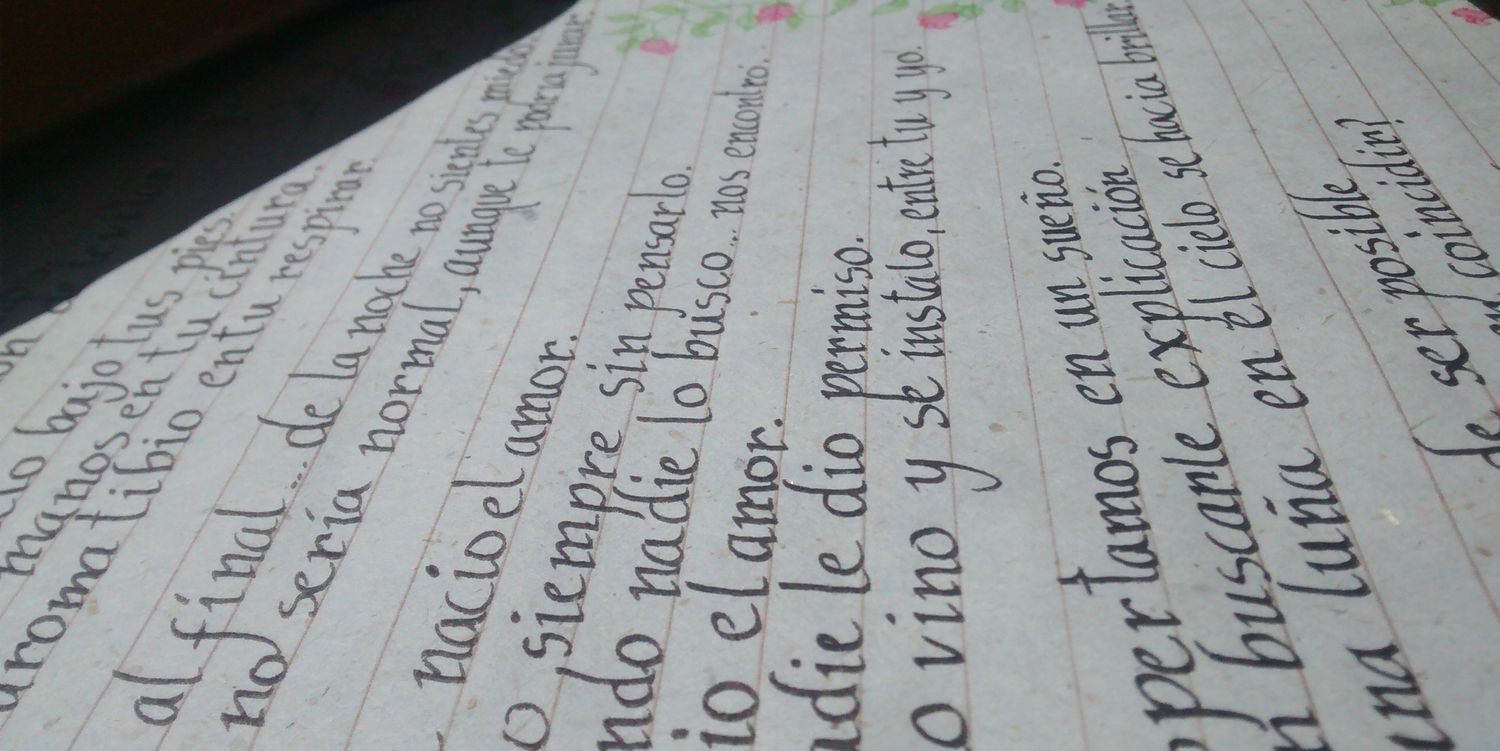 bajo tus pies,
manos en tu cintura.
aroma tibio en tu respirar.
al final... de la noche no sientes miedo,
no sería normal, aunque te podria jurar.
nacio el amor.
o, siempre sin pensarlo.
ndo nadie lo busco... nos encontró.
io el amor.
adie le dio permiso.
o vino y se instalo, entre tu y yo.
pertamos en un sueño.
n buscarle explicación
una luña en el cielo se hacia brillar.
de ser posible
coincidir?